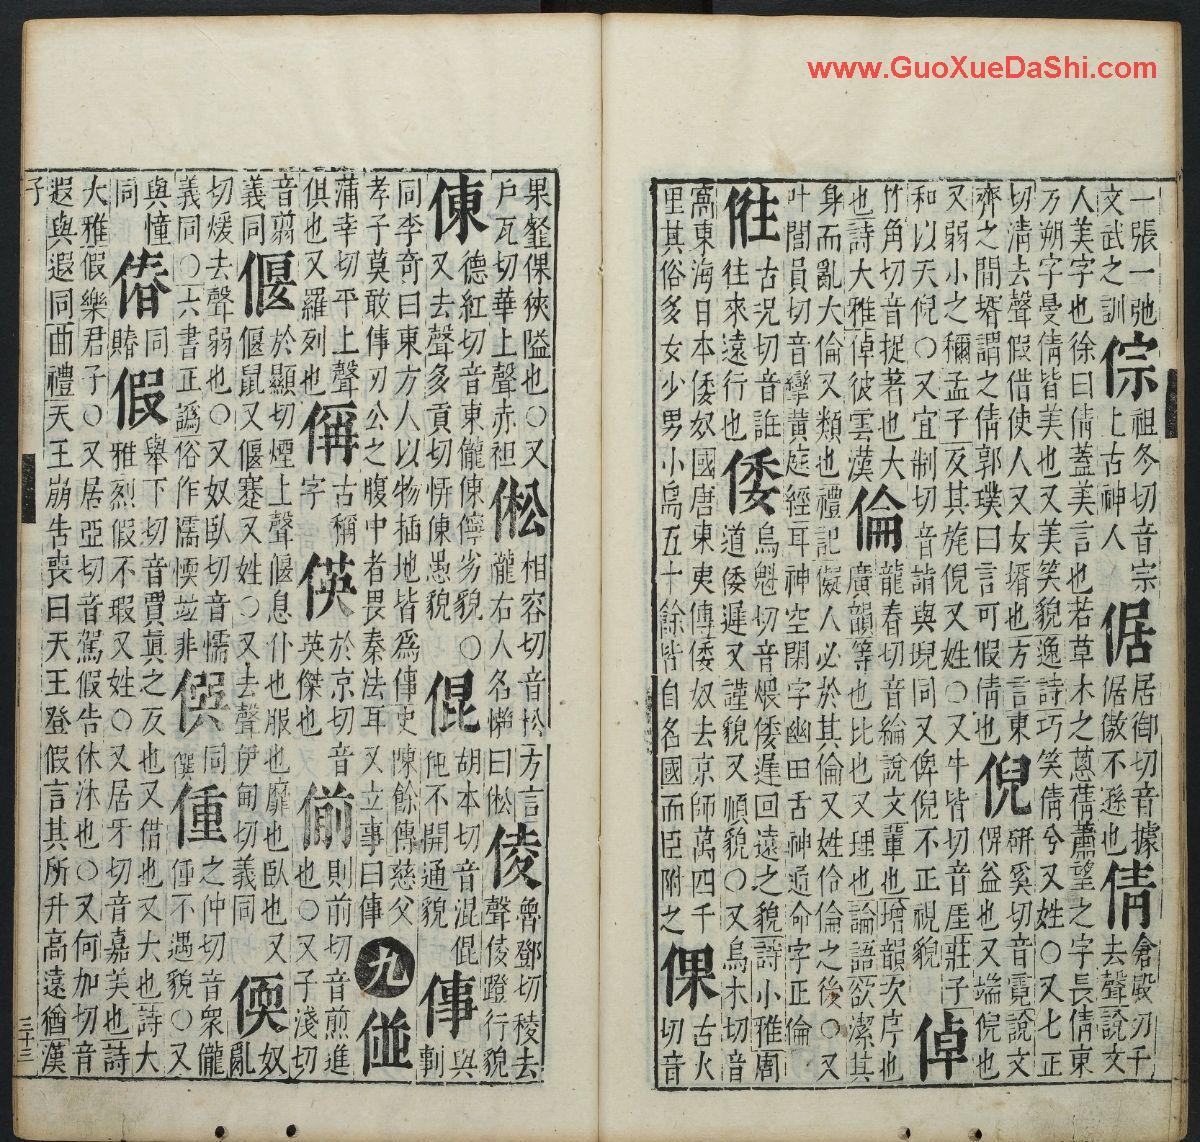 一張一弛文武之訓倧祖冬切音宗上古神人倨居御切音據倨傲不遜也倩倉殿切千去聲說文
人美字也徐曰倩蓋美言也若草木之蔥蒨蕭望之字長倩東方朔字曼倩皆美也又美笑貌逸詩巧笑倩兮又姓○又七正
切淸去聲假借使人又女壻也方言東齊之間壻謂之倩郭璞曰言可假倩也倪硏奚切音霓說文俾益也又端倪也
又弱小之稱孟子反其旄倪又姓○又牛皆切音厓莊子和以天倪○又宜制切音詣與睨同又俾倪不正視貌倬
竹角切音捉著也大也詩大雅倬彼雲漢倫龍春切音綸說文輩也增韻次序也廣韻等也比也又理也論語欲潔其
身而亂大倫又類也禮記儗人必於其倫又姓伶倫之後○又叶閭員切音攣黃庭經耳神空閑字幽田舌神通命字正倫
古況切音誑往來遠行也倭烏魁切音煨倭遲回遠之貌詩小雅周道倭遲又謹貌又順貌○又烏禾切音
窩東海日本倭奴國唐東夷傳倭奴去京師萬四千里其俗多女少男小島五十餘皆自名國而臣附之倮古火切音
果倮狹隘也○又戶瓦切華上聲赤袒倯相容切音松方言隴右人名懶曰倯倰魯鄧切稜去聲倰蹬行貌
倲德紅切音東儱倲儜劣貌○又去聲多貢切倲愚貌倱胡本切音混倱伅不開通貌倳與剚
同李奇曰東方人以物插地皆爲倳史陳餘傳慈父孝子莫敢倳刃公之腹中者畏秦法耳又立事曰倳九
蒲幸切平上聲俱也又羅列也偁古稱字偀於京切音英傑也偂則前切音煎進也○又子淺切
音翦義同偃於顯切煙上聲偃息仆也服也靡也臥也又偃鼠又偃蹇又姓○又去聲伊甸切義同偄奴亂
切煖去聲弱也○又奴臥切音懦義同○六書正譌俗作濡愞竝非同僎偅之仲切音衆儱偅不遇貌○又
與憧同偆同賰假舉下切音賈眞之反也又借也又大也詩大雅烈假不瑕又姓○又居牙切音嘉美也詩
大雅假樂君子○又居亞切音駕假告休沐也○又何加切音遐與遐同曲禮天王崩告喪曰天王登假言其所升高遠猶漢
子
三十三
www.GuoXueDaShi.com